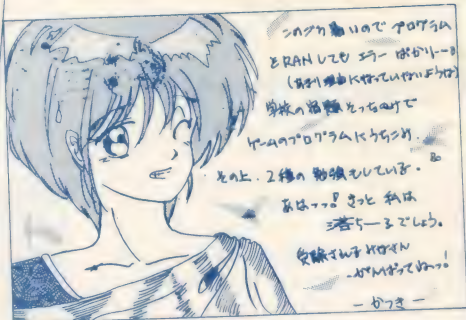 このごろ暑いので プログラム
をRANしても エラー ばかりーー!
(あまり理由になっていないような)
学校の勉強そっちのけで
ゲームのプログラムにうちこみ、
その上、2種の勉強もしている。
あはっっ!きっと 私は
落ちーるでしょう。
受験されるみなさん
がんばってねっ!
-かつき-